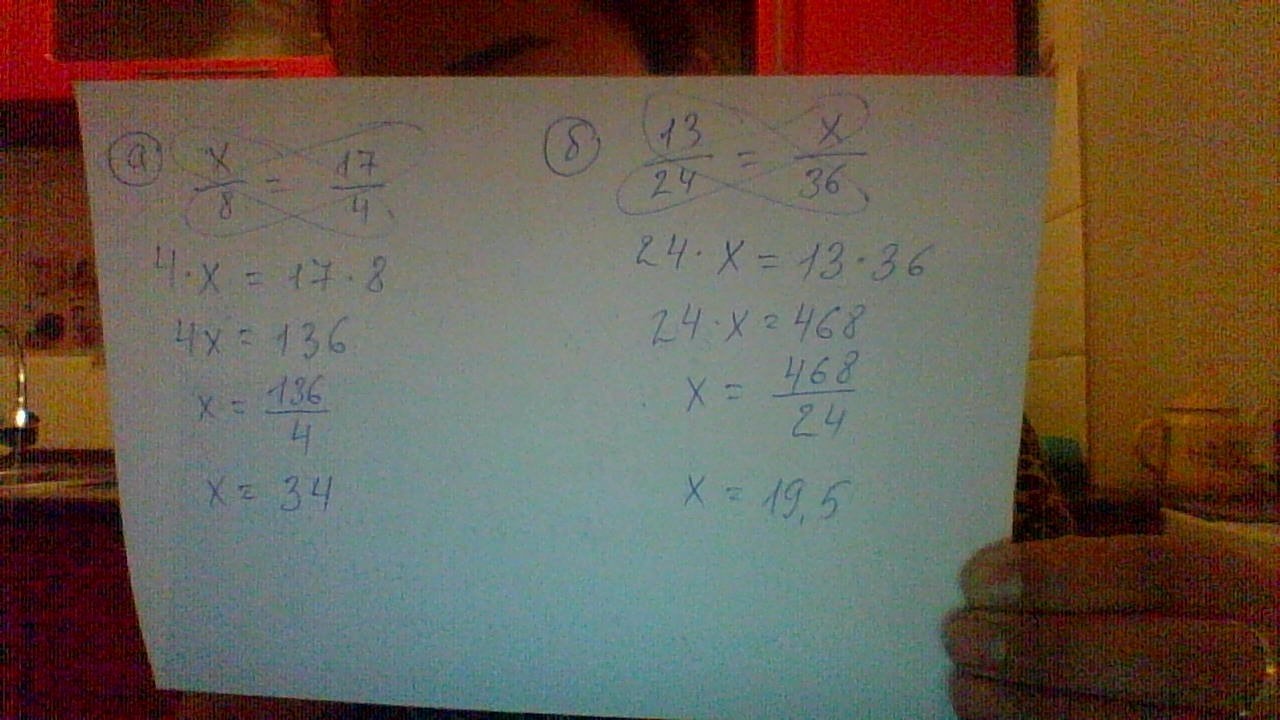 а) x/8 = 17/4
4·x = 17·8
4x = 136
x = 136/4
x = 34
б) 13/24 = x/36
24·x = 13·36
24·x = 468
x = 468/24
x = 19,5